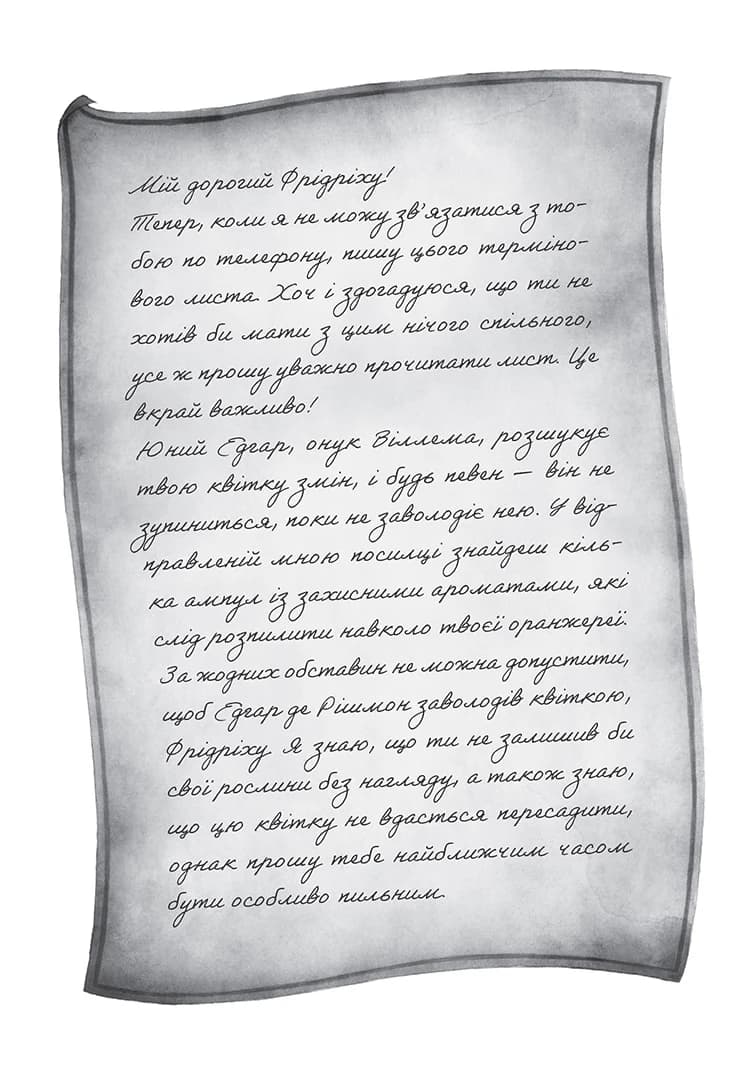 Мій дорогий Фрідріху!
Тепер, коли я не можу зв'язатися з то-
бою по телефону, пишу цього терміно-
вого листа. Хоч і здогадуюся, що ти не
хотів би мати з цим нічого спільного,
усе ж прошу уважно прочитати лист. Це
вкрай важливо!
Юний Едгар, онук Віллема, розшукує
твою квітку змін, і будь певен — він не
зупиниться, поки не заволодіє нею. У від-
правленій мною посилці знайдеш кіль-
ка ампул із захисними ароматами, які
слід розпилити навколо твоєї оранжереї.
За жодних обставин не можна допустити,
щоб Едгар де Рішмон заволодів квіткою,
Фрідріху. Я знаю, що ти не залишив би
свої рослини без нагляду, а також знаю,
що цю квітку не вдасться пересадити,
однак прошу тебе найближчим часом
бути особливо пильним.